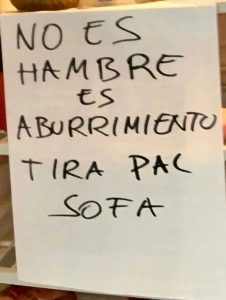 NO ES
HAMBRE
ES
ABURRIMIENTO
TIRA PAL
SOFA